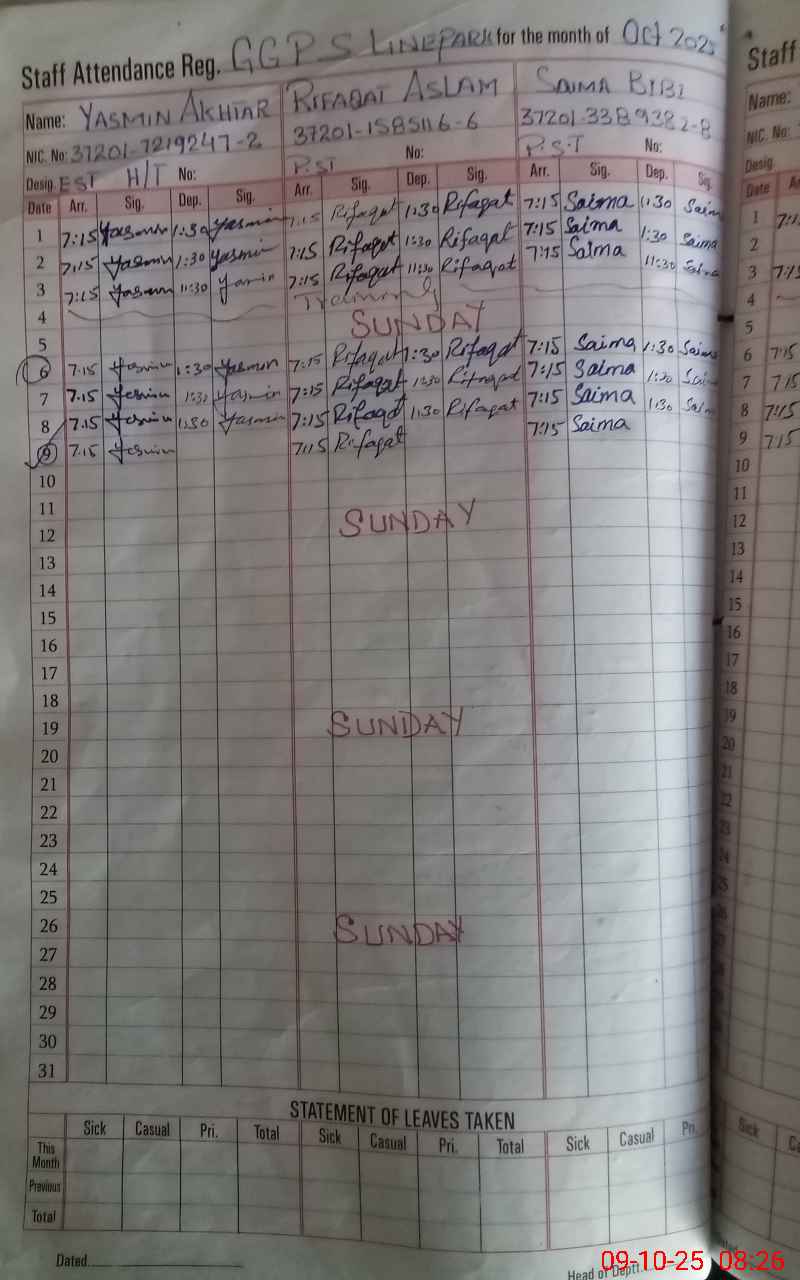 Staff Attendance Reg. GGPS LINEPARK for the month of Oct 2025
Name: YASMIN AKHTAR RIFAQAT ASLAM SAIMA BIBI
NIC. No: 37201-7219247-2 37201-1585116-6 37201-3389382-8
Desig. EST H/T No: P.ST No: P.S.T No:
Date Arr. Sig. Dep. Sig. Arr. Sig. Dep. Sig. Arr. Sig. Dep. Sig.
1 7:15 Yasmin 1:30 Yasmin 7:15 Rifaqat 1:30 Rifaqat 7:15 Saima 1:30 Saima
2 7:15 Yasmin 1:30 Yasmin 7:15 Rifaqat 1:30 Rifaqat 7:15 Saima 1:30 Saima
3 7:15 Yasmin 11:30 Yasmin 7:15 Rifaqat 11:30 Rifaqat 7:15 Saima 11:30 Saima
4
5 SUNDAY
6 7:15 Yasmin 1:30 Yasmin 7:15 Rifaqat 1:30 Rifaqat 7:15 Saima 1:30 Saima
7 7:15 Yasmin 1:30 Yasmin 7:15 Rifaqat 1:30 Rifaqat 7:15 Saima 1:30 Sai
8 7:15 Yasmin 1:30 Yasmin 7:15 Rifaqat 1:30 Rifaqat 7:15 Saima 1:30 Sai
9 7:15 Yasmin 7:15 Rifaqat 7:15 Saima
10
11
12 SUNDAY
13
14
15
16
17
18
19 SUNDAY
20
21
22
23
24
25
26 SUNDAY
27
28
29
30
31
STATEMENT OF LEAVES TAKEN
Sick Casual Pri. Total Sick Casual Pri. Total Sick Casual Pri.
This Month
Previous
Total
Dated Head of Deptt.
Staff
Name:
NIC. No:
Desig.
Date
1
2
3
4
5
6 7:15
7 7:15
8 7:15
9 7:15
10
11
12
13
14
15
16
17
18
19
20
21
22
23
24
25
Sick
09-10-25 08:26